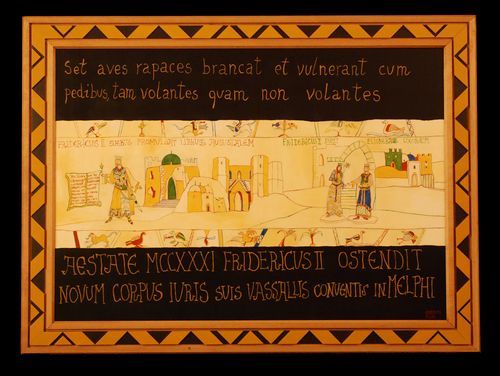 Set aves rapaces brancat et vulnerant cum
pedibus, tam volantes quam non volantes
FRIDERICUS II
AESTATE MCCXXXI FRIDERICUS II OSTENDIT
NOVUM CORPUS IURIS SUIS VASSALLIS CONVENTIS IN MELPHI